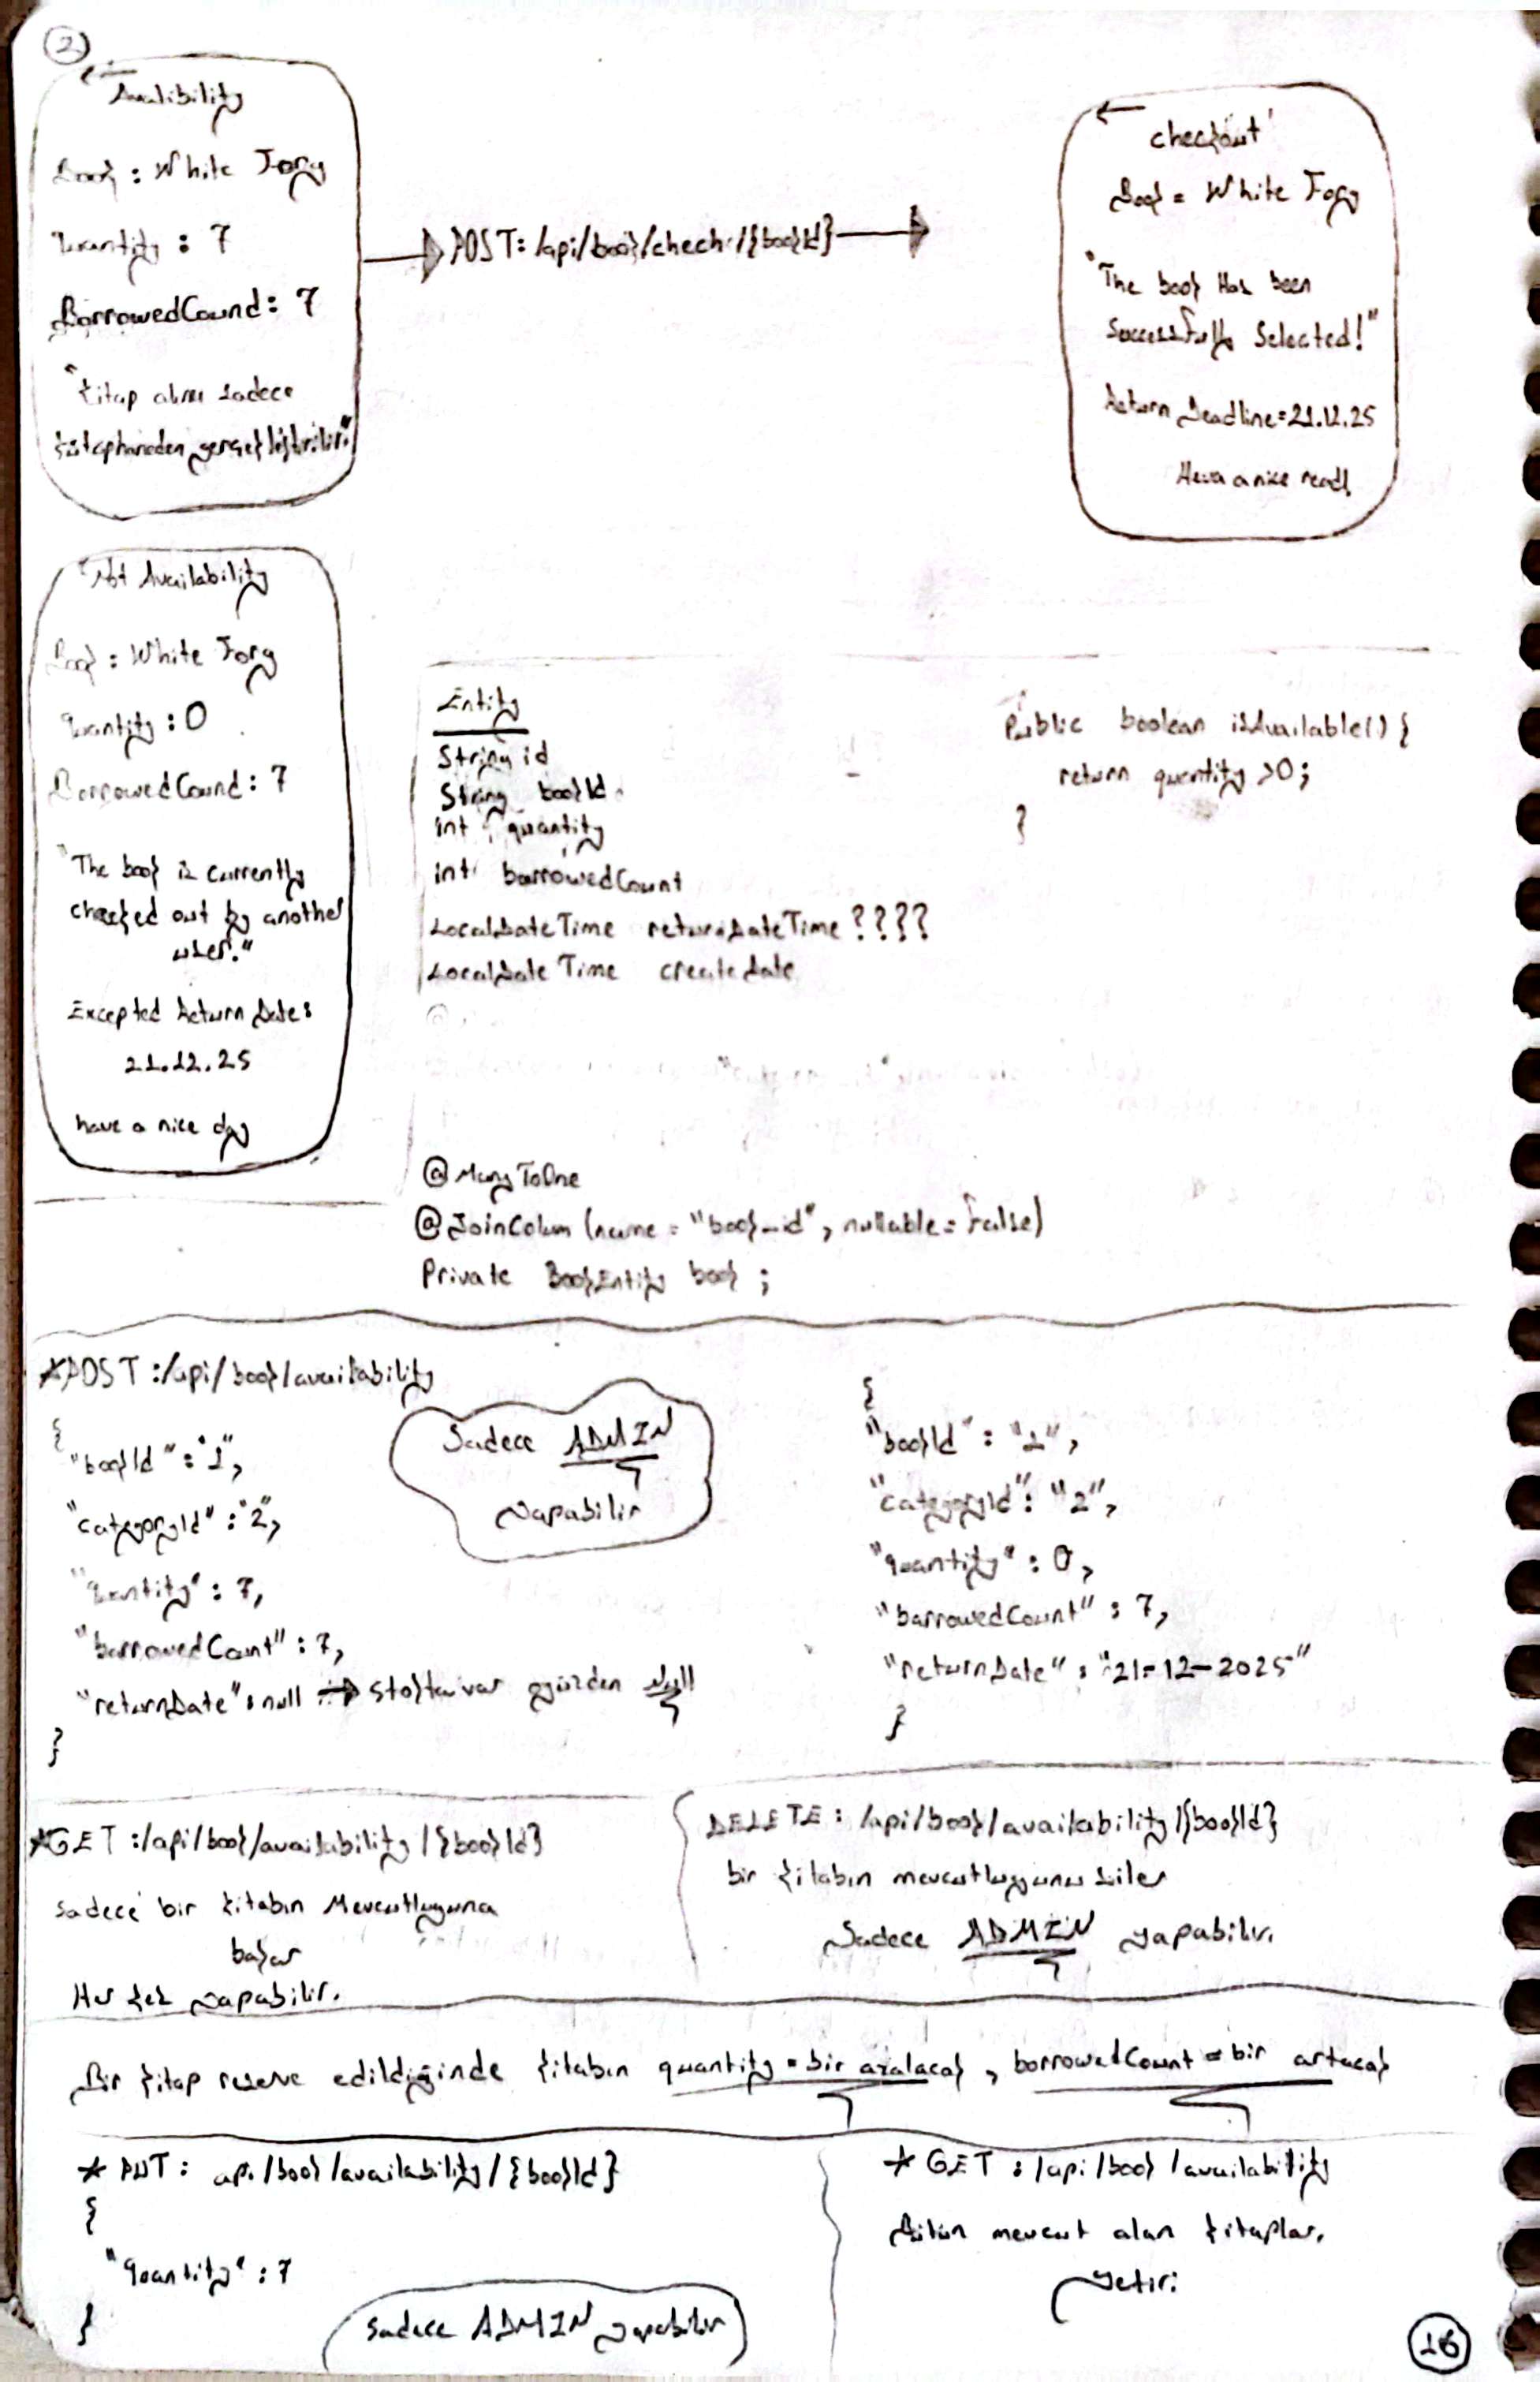 2
←
Avalibility
Book : White Forg
Quantity : 7
BorrowedCound : 7
"Kitap alımı sadece
kütüphaneden gerçekleştirilir."
POST: /api/book/check/{bookId}
←
checkout
Book = White Forg
"The book Has been
Successfully Selected!"
Return Deadline=21.12.25
Have a nice read!
Not Availability
Book : White Forg
Quantity : 0
BorrowedCound : 7
"The book is currently
checked out by another
user."
Excepted Return Date:
21.12.25
have a nice day
Entity
String id
String bookId
int quantity
int borrowedCount
LocalDateTime returnDateTime ????
LocalDateTime createDate
Public boolean isAvailable() {
return quantity >0;
}
@ManyToOne
@JoinColum (name = "book_id", nullable = false)
Private BookEntity book ;
*POST :/api/book/availability
{
"bookId" : "1",
"categoryId" : "2",
"quantity" : 7,
"borrowedCount" : 7,
"returnDate" : null → Stokta var o yüzden Null
}
Sadece ADMIN
yapabilir
{
"bookId" : "1",
"categoryId" : "2",
"quantity" : 0,
"barrowedCount" : 7,
"returnDate" : "21-12-2025"
}
*GET :/api/book/availability/{bookId}
Sadece bir kitabın Mevcutluguna
bakar
Her kes yapabilir.
DELETE : /api/book/availability/{bookId}
bir kitabın mevcutlugunu siler
Sadece ADMIN yapabilir.
Bir kitap reserve edildiğinde kitabın quantity = bir azalacak , borrowedCount = bir artacak
* PUT : api/book/availability/{bookId}
{
"quantity" : 7
}
Sadece ADMIN yapabilir
* GET : /api/book/availability
Bütün mevcut olan kitapları
getirir
16